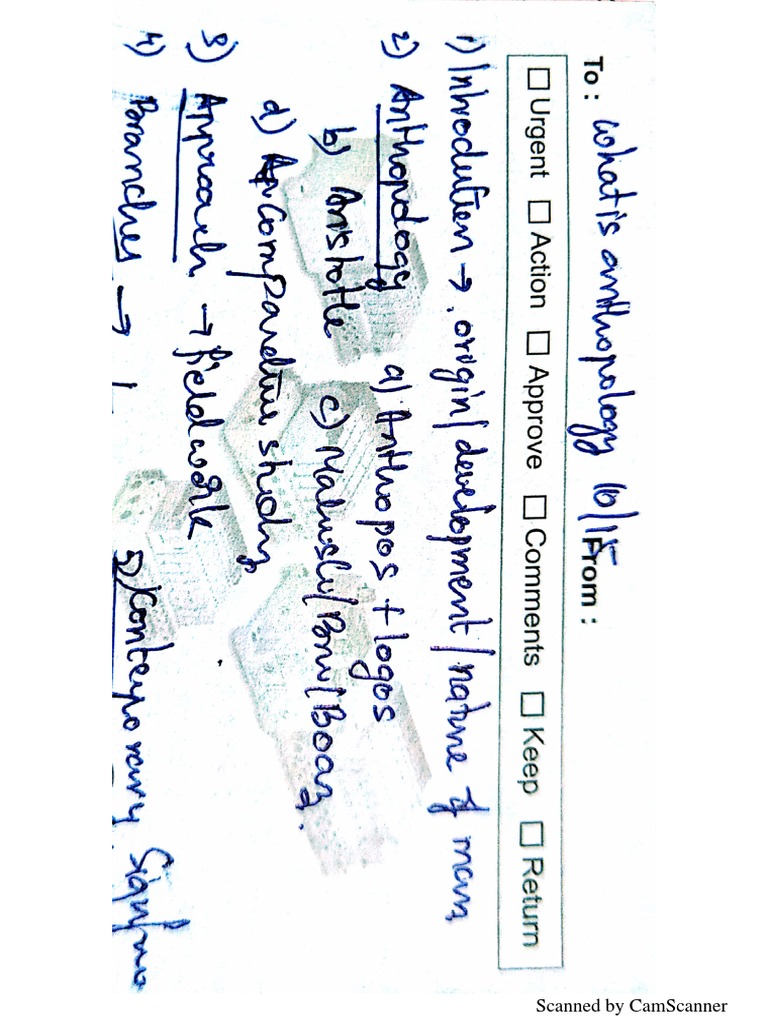 To : what is anthopology 10/15 From :
Urgent Action Approve Comments Keep Return
1) Introdution → origin / development / nature of man
2) Anthopology a) Anthopos + logos
b) Aristotle c) / / Boas
d) Comparative study
3) Approach → field work
4) Branches → 1 5) Contemporary
Scanned by CamScanner